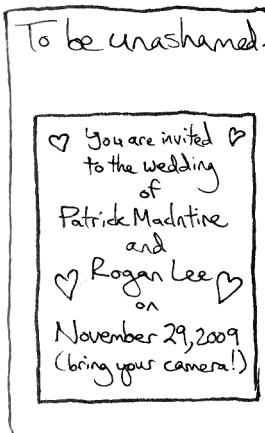 To be unashamed.
You are invited
to the wedding
of
Patrick MacIntine
and
Rogan Lee
on
November 29, 2009
(bring your camera!)